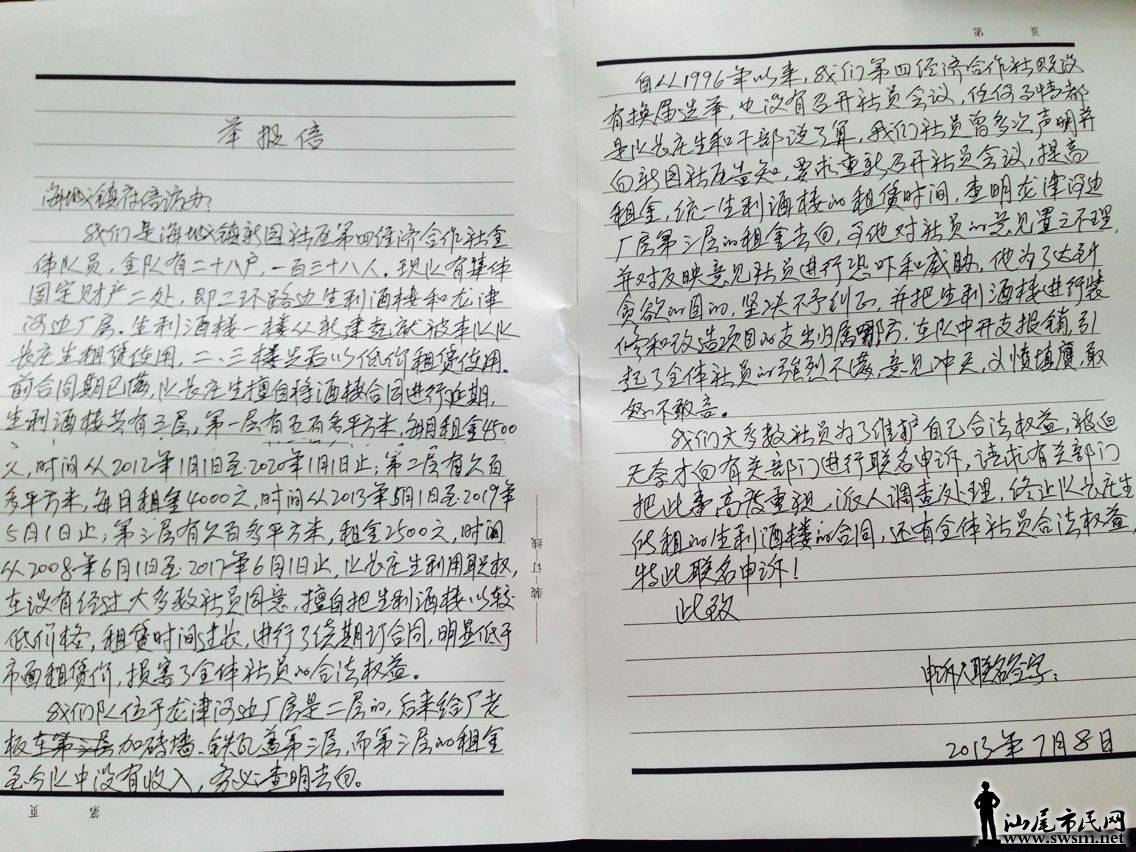 举报信
海城镇府信访办：
我们是海城镇新园社区第四经济合作社全
体队员，全队有二十八户，一百三十八人。现队有集体
固定财产二处，即二环路边生利酒楼和龙津
河边厂房。生利酒楼一楼从新建起就被本队队
长庄生租赁使用，二、三楼先后以低价租赁使用。
前合同期已满，队长庄生擅自将酒楼合同进行延期，
生利酒楼共有三层，第一层有五百多平方米，每月租金4500
元，时间从2012年1月1日至2020年1月1日止；第二层有六百
多平方米，每月租金4000元，时间从2013年5月1日至2019年
5月1日止；第三层有六百多平方米，租金2500元，时间
从2008年6月1日至2017年6月1日止，队长庄生利用职权，
在没有经过大多数社员同意，擅自把生利酒楼以较
低价格，租赁时间过长，进行了续期订合同，明显低于
市面租赁价，损害了全体社员的合法权益。
我们队位于龙津河边厂房是二层的，后来给厂老
板在第三层加砖墙、铁瓦盖第三层，而第三层的租金
至今队中没有收入，务必查明去向。
第 页
装 订 线
第 页
自从1996年以来，我们第四经济合作社既没
有换届选举，也没有召开社员会议，任何事情都
是队长庄生和干部说了算，我们社员曾多次声明并
向新园社区告知，要求重新召开社员会议，提高
租金，统一生利酒楼的租赁时间，查明龙津河边
厂房第三层的租金去向，可他对社员的意见置之不理，
并对反映意见社员进行恐吓和威胁，他为了达到
贪欲的目的，坚决不予纠正，并把生利酒楼进行装
修和改造项目的支出归属 方，在队中开支报销，引
起了全体社员的强烈不满，意见冲天，义愤填膺，敢
怒不敢言。
我们大多数社员为了维护自己合法权益，被迫
无奈才向有关部门进行联名申诉，请求有关部门
把此事高度重视，派人调查处理，终止队长庄生
低租的生利酒楼的合同，还有全体社员合法权益，
特此联名申诉！
此致
申诉人联名签字：
2013年7月8日
汕尾市民网
www.swsm.net